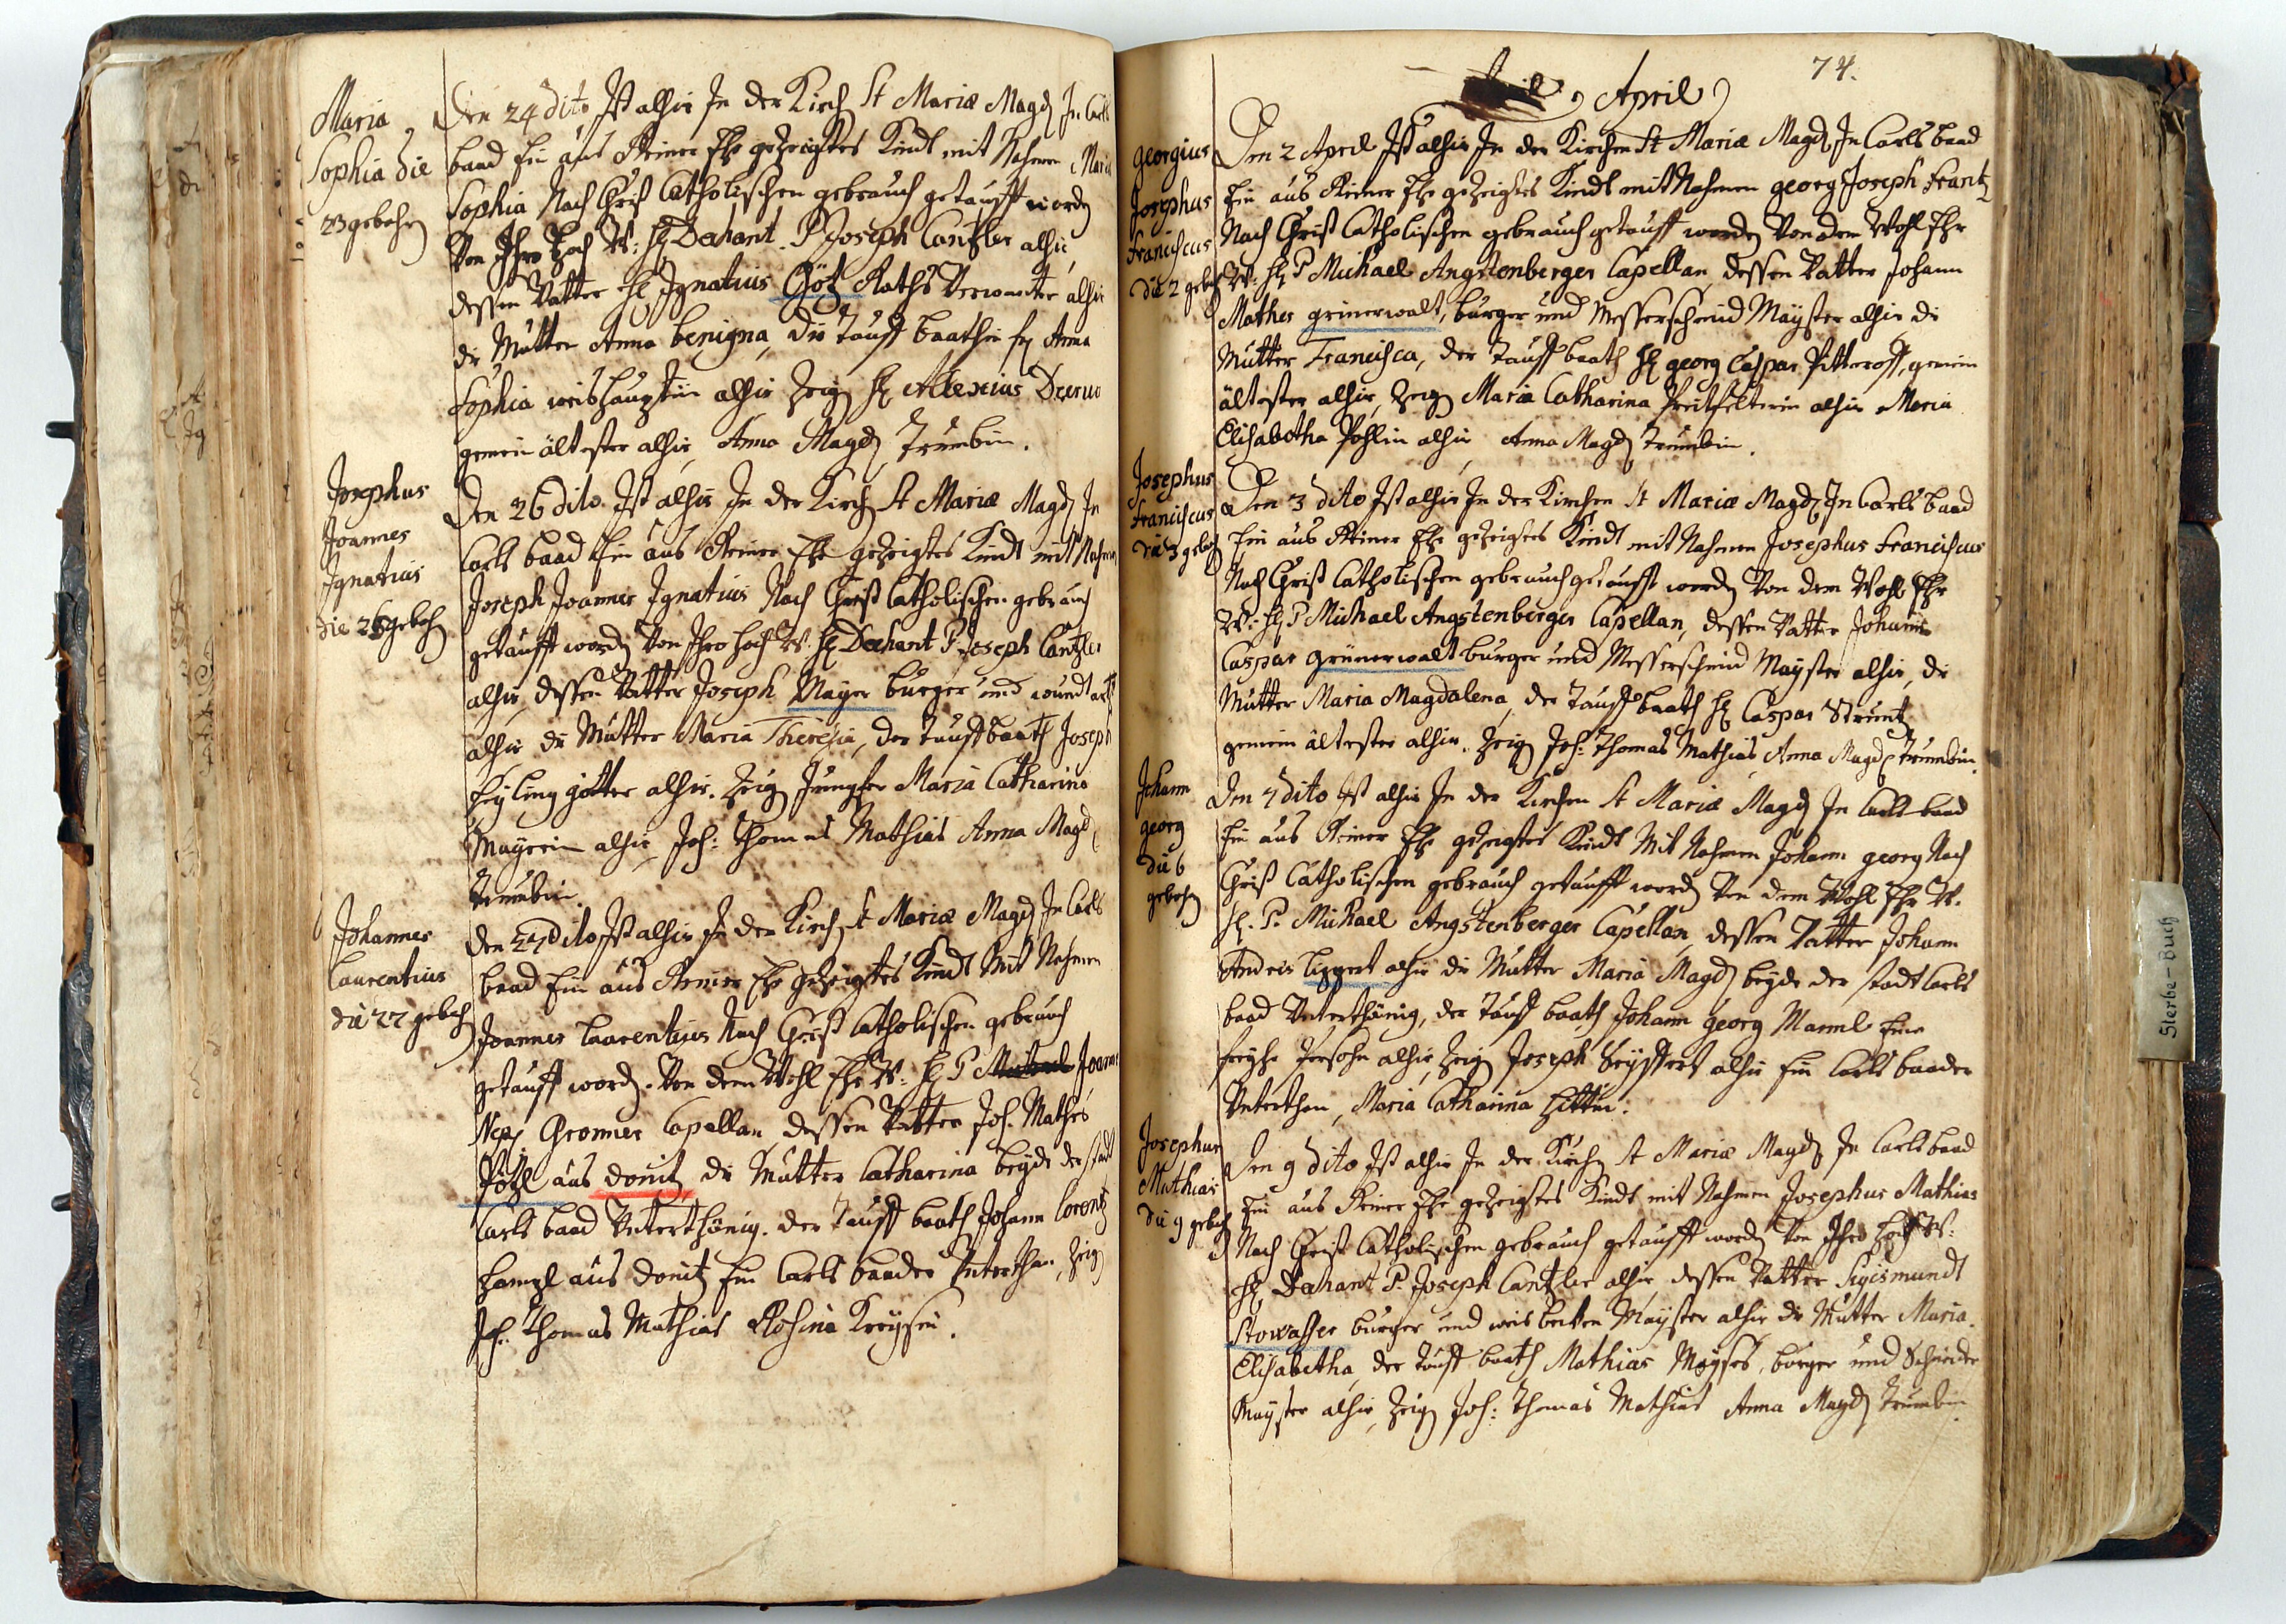 Maria
Sophia die
23 gebohr
Den 24 dito Ist alhir In der Kirch St Mariæ Magd In Carls
baad Ein aus Reiner Ehe gezeigtes Kindt mit Nahmen Maria
Sophia Nach Christ Catholischen gebrauch getaufft word
Von Ihro Hoch W: H Dechant P Joseph Cantzler alhir,
dessen Vatter H Ignatius Götz Raths Verwanter alhir
die Mutter Anna benigna, die Tauff baathin fr Anna
Sophia weishäuptin alhir Zeig H Allexius
gemein ältester alhir, Anna Magd Trumbin.
Josephus
Joannes
Ignatius
die 26 geboh
Den 26 dito. Ist alhir In der Kirch St Mariæ Magd In
Carls baad Ein aus Reiner Ehe gezeigtes Kindt mit Nahmen
Joseph Joannes Ignatius Nach Christ Catholischen gebrauch
getaufft word Von Ihro Hoch W. H Dechant P Joseph Cantzler
alhir, dessen Vatter Joseph Mayer burger und wundt artzt
alhir die Mutter Maria Theresia, der Tauff baath Joseph
Heyling götter alhir. Zeig Jungfer Maria Catharina
Mayerin alhir, Joh: Thomas Mathias Anna Magd
Trumbin.
Johannes
Laurentius
die 27 geboh
Den 27 dito Ist alhir In der Kirch St Mariæ Magd In Carls
baad Ein aus Reiner Ehe gezeigtes Kindt Mit Nahmen
Joannes Laurentius Nach Christ Catholischen gebrauch
getaufft word. Von dem Wohl Ehr W: H P Michael Joann
Nep Gronner Capellan, dessen Vatter Joh. Mathes
Pötzl aus donitz die Mutter Catharina beyde der stadt
Carls baad Unterthänig. der Tauff baath Johann Lorentz
Hampl aus donitz Ein Carls baader Unterthan, Zeig
Joh: Thomas Mathias Rosina Kreyssin.
April
74.
Georgius
Josephus
Franciscus
die 2 geboh
Den 2 April Ist alhir In der Kirchen St Mariæ Magd In Carls baad
Ein aus Reiner Ehe gezeigtes Kindt mit Nahmen georg Joseph Frantz
Nach Christ Catholischen gebrauch getauff word Von dem Wohl Ehr
W: H P Michael Angstenberger Capellan, dessen Vatter Johann
Mathes grinerwalt, burger und Messerschmid Mayster alhir di
Mutter Francisca, der Tauff baath H georg Caspar Pitteroff, gemein
ältester alhir, Zeig Maria Catharina Preitfelterin alhir Maria
Elisabetha Pohlin alhir Anna Magd Trumbin.
Josephus
Franciscus
die 3 geboh
Den 3 dito Ist alhir In der Kirchen St Mariæ Magd In Carls baad
Ein aus Reiner Ehe gezeigtes Kindt mit Nahmen Josephus Franciscus
Nach Christ Catholischen gebrauch getaufft word Von dem Wohl Ehr
W: H P Michael Angstenberger Capellan, dessen Vatter Johann
Caspar grünerwalt burger und Messerschmid Mayster alhir, di
Mutter Maria Magdalena, der Tauff baath H Caspar Strunz
gemein ältester alhir. Zeig Joh: Thomas Mathias Anna Magd Trumbin.
Johann
georg
die 6
geboh
Den 7 dito Ist alhir In der Kirchen St Mariæ Magd In Carls baad
Ein aus Reiner Ehe gezeigtes Kindt Mit Nahmen Johann georg Nach
Christ Catholischen gebrauch getaufft word Von dem Wohl Ehr W.
H. P. Michael Angstenberger Capellan, dessen Vatter Johann
Andreis Lippert alhir die Mutter Maria Magd beyde der stadt Carls
baad Unterthänig, der Tauff baath Johann georg Mannl Eine
freyhe Persohn alhir, Zeig Joseph Seyffert alhir Ein Carls baader
Unterthan, Maria Catharina Hittin.
Josephus
Mathias
die 9 geboh
Den 9 dito Ist alhir In der Kirch St Mariæ Magd In Carls baad
Ein aus Reiner Ehe gezeigtes Kindt mit Nahmen Josephus Mathias
Nach Christ Catholischen gebrauch getaufft word Von Ihro Hoch W:
H Dechant P. Joseph Cantzler alhir dessen Vatter Sigismundt
Stowasser burger und weis becken Mayster alhir die Mutter Maria
Elisabetha, der Tauff baath Mathias Moyses, burger und Schneider
Mayster alhir, Zeig Joh: Thomas Mathias Anna Magd Trumbin
Sterbe-Buch